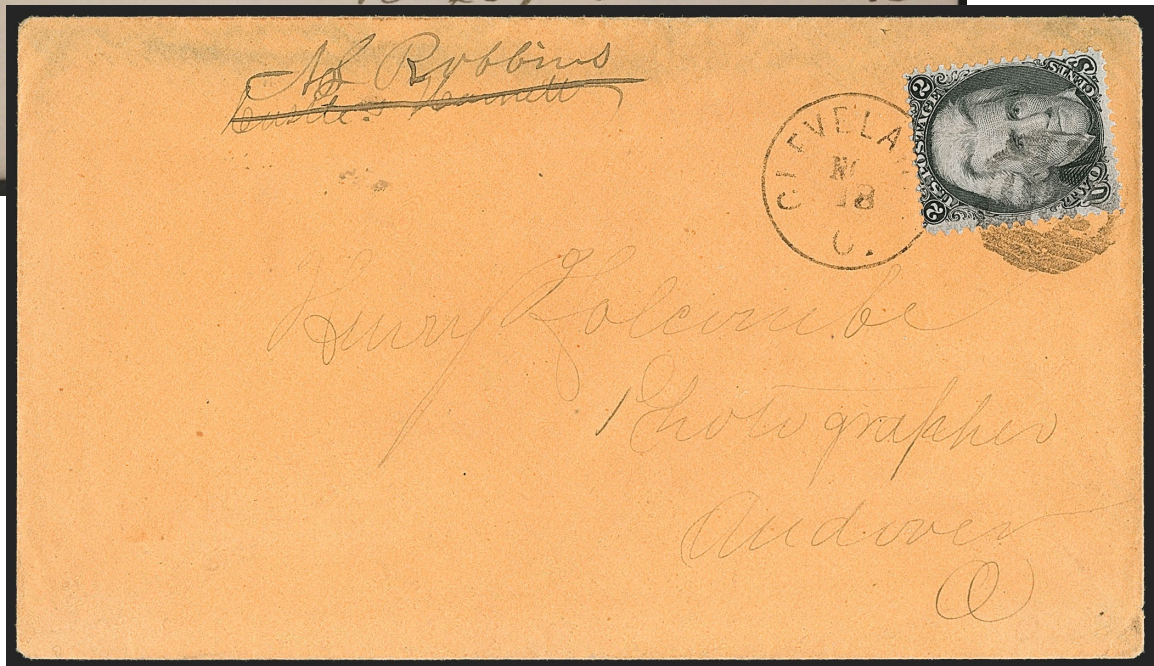 Robbins
CLEVELA
18
O.
U.S. POSTAGE
2 2
Henry Holcombe
Photographer
Andover
O